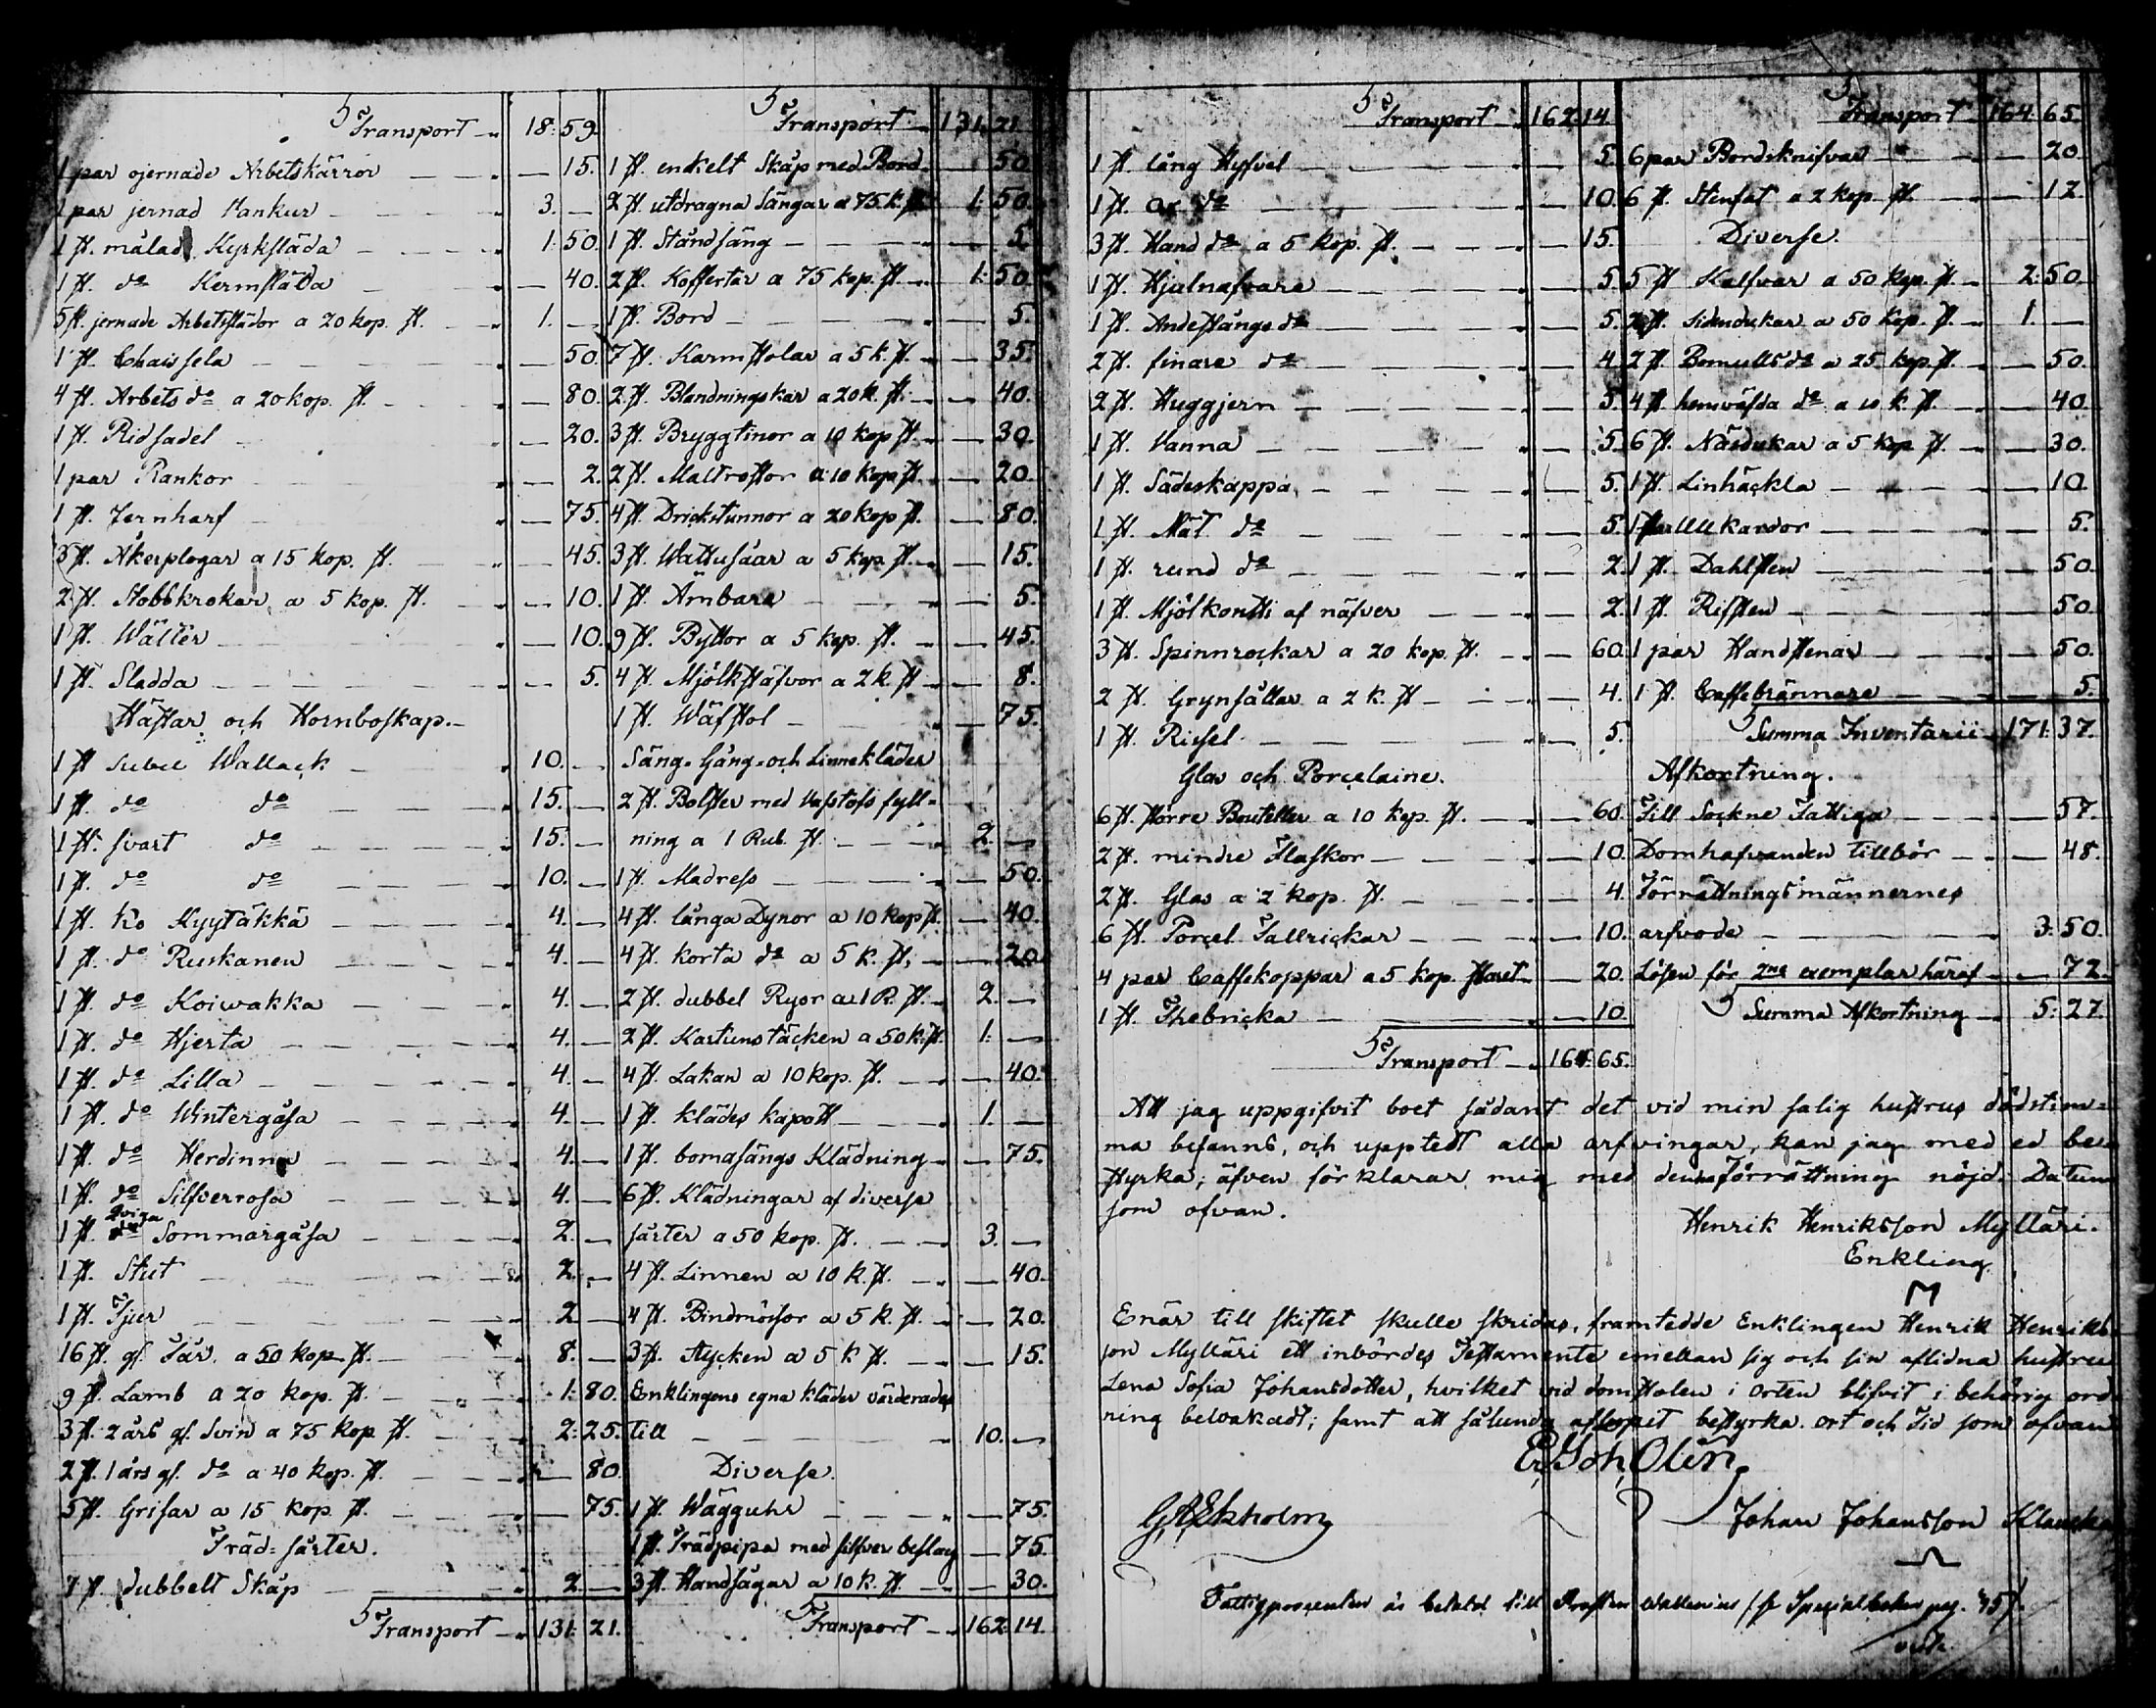 Transport 18: 59
1 par ojernade Arbetskärror 15.
1 par jernad Kankur 3. —
1 st. målad Kyrksläda 1: 50.
1 st. do Kermsläda 40.
5 st. jernade Arbetsslädor a 20 kop. st. 1. —
1 st. Chais sela 50.
4 st. Arbets do a 20 kop. st. 80.
1 st. Ridsadel 20.
1 par Rankor 2.
1 st. Jernharf 75.
3 st. Åkerplogar a 15 kop. st. 45.
2 st. Stobbkrokar a 5 kop. st. 10.
1 st. Wälter 10.
1 st. Sladda 5.
Hästar och Hornboskap.
1 st. Wallack 10. —
1 st. do do 15. —
1 st. svart do 15. —
1 st. do do 10. —
1 st. ko Kyytäkkä 4. —
1 st. do Ruskanen 4. —
1 st. do Koiwakka 4. —
1 st. do Hjerta 4. —
1 st. do Lilla 4. —
1 st. do Wintergåsa 4. —
1 st. do Herdinna 4. —
1 st. do Silfverrosa 4. —
1 st. qviga Sommargåsa 2. —
1 st. Stut 2. —
1 st. Tjur 2. —
16 st. gl. Får a 50 kop. st. 8. —
9 st. Lamb a 20 kop. st. 1: 80.
3 st. 2 års gl. Svin a 75 kop st. 2: 25.
2 st. 1 års gl. do a 40 kop. st. 80.
5 st. Grisar a 15 kop. st. 75.
Träd-sårter.
1 st. dubbelt Skåp 2. —
Transport 131: 21.
Transport 131. 21
1 st. enkelt Skåp med Bord 50
2 st. utdragna Sängar a 75 k. st. 1: 50.
1 st. Ståndsäng 5.
2 st. Koffertar a 75 kop. st. 1: 50.
1 st. Bord 5.
7 st. Karmstolar a 5 k. st. 35.
2 st. Blandningskar a 20 k. st. 40.
3 st. Bryggtinor a 10 kop st. 30.
2 st. Maltrostor a 10 kop st. 20.
4 st. Drickstunnor a 20 kop st. 80.
3 st. Wattusåar a 5 kop st. 15.
1 st. Ämbare 5.
9 st. Byttor a 5 kop. st. 45.
4 st. Mjölkstäfvor a 2 k. st 8.
1 st. Wäfstol 75.
Säng- Gång- och Linnekläder
2 st. Bolster med fyll-
ning a 1 Rub. st. 2. —
1 st. Madrass 50.
4 st. långa Dynor a 10 kop st. 40.
4 st. korta do a 5 k. st. 20
2 st. dubbel Ryor a 1 R. st. 2. —
2 st. Kartunstäcken a 50 k. st. 1. —
4 st. Lakan a 10 kop. st. 40.
1 st. klädes kapott 1. —
1 st. bomasängs Klädning 75.
6 st. Klädningar af diverse
sårter a 50 kop. st. 3. —
4 st. Linnen a 10 k. st. 40.
4 st. Bindmössor a 5 k. st. 20.
3 st. Stycken a 5 k st. 15.
Enklingens egna kläder värderades
till 10. —
Diverse.
1 st. Wägguhr 75.
1 st. Trädpipa med silfver beslag 75.
3 st. Handsågar a 10 k. st. 30.
Transport 162: 14.
Transport 162: 14.
1 st. lång Hyfvel 5
1 st. do 10.
3 st. Hand do a 5 kop. st. 15.
1 st. Hjulnafvare 5
1 st. Andestångs do 5.
2 st. finare do 4
2 st. Huggjern 5.
1 st. Vanna 5.
1 st. Sädeskappa 5.
1 st. Mät do 5.
1 st. rund do 2.
1 st. Mjölkontti af näfver 2.
3 st. Spinnrockar a 20 kop. st. 60.
2 st. Grynsållar a 2 k. st 4.
1 st. Rissel 5.
Glas och Porcelaine.
6 st. större Bouteller a 10 kop. st. 60.
2 st. mindre Flaskor 10.
2 st. Glas a 2 kop. st. 4.
6 st. Porcel. Tallrickar 10.
4 par Caffekoppar a 5 kop. paret 20.
1 st. Thebricka 10.
Transport 164: 65.
Transport 164: 65.
6 par Bordsknifvar 20.
6 st. Stenfat a 2 kop. st. 12.
Diverse.
5 st Kalfvar a 50 kop. st. 2: 50.
2 st. Sidendukar a 50 kop. st. 1. —
2 st. Bomulls do a 25 kop. st. 50.
4 st. hemväfda do a 10 k. st. 40.
6 st. Näsdukar a 5 kop st. 30.
1 st. Linhäckla 10.
1 par Ullkardor 5.
1 st. Dahlsten 50.
1 st. Rifsten 50
1 par Handstenar 50.
1 st. Caffebrännare 5.
Summa Inventarii 171: 37.
Afkortning.
Till Sockne Fattiga 57.
Domhafvanden tillbör 48.
Förrättningsmännernes
arfvode 3: 50.
Lösen för 2ne exemplar häraf 72.
Summa Afkortning 5: 27.
Att jag uppgifvit boet sådant det vid min salig hustrus dödstim-
ma befanns, och upptedt alla arfvingar, kan jag med ed be-
styrka; äfven förklarar mig med denna förrättning nöjd. Datum
som ofvan.
Henrik Henriksson Mylläri.
Enkling.
Enär till skiftet skulle skridas, framtedde Enklingen Henrik Henriks-
son Mylläri ett inbördes Testamente emellan sig och sin aflidna hustru
Lena Sofia Johansdotter, hvilket vid domstolen i orten blifvit i behörig ord-
ning bevakadt; samt att sålunda aflupit bestyrka. Ort och Tid som ofvan
Joh. Olin.
G A Ekholm
Johan Johansson
Fattigprocenten är betald till Prosten Wallenius